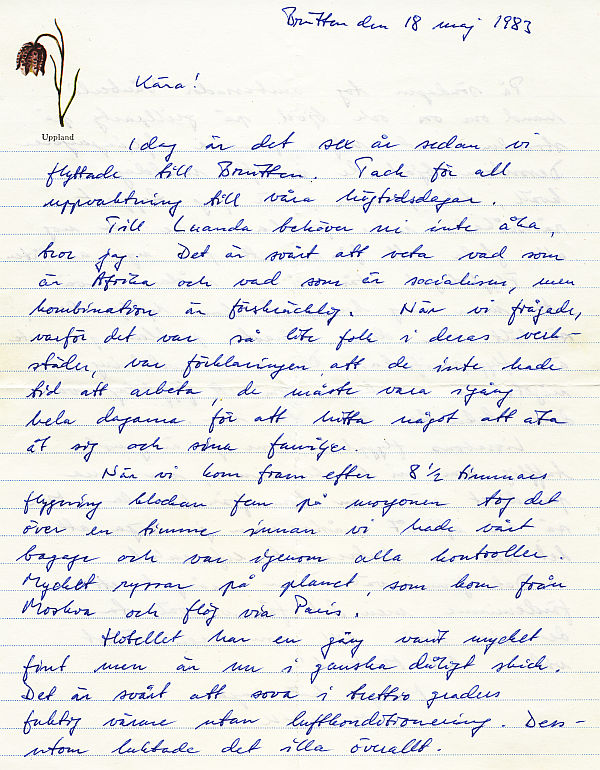 Brötten den 18 maj 1983
Kära!
Uppland
Idag är det sex år sedan vi
flyttade till Brötten. Tack för all
uppvaktning till våra högtidsdagar.
Till Luanda behöver ni inte åka,
tror jag. Det är svårt att veta vad som
är Afrika och vad som är socialism, men
kombination är förskräcklig. När vi frågade,
varför det var så lite folk i deras verk-
städer, var förklaringen att de inte hade
tid att arbeta, de måste vara igång
hela dagarna för att hitta något att äta
åt sig och sina familjer.
När vi kom fram efter 8 1/2 timmars
flygning klockan fem på morgonen tog det
över en timme innan vi hade vårt
bagage och var igenom alla kontroller.
Mycket ryssar på planet, som kom från
Moskva och flög via Paris.
Hotellet har en gång varit mycket
fint men är nu i ganska dåligt skick.
Det är svårt att sova i trettio graders
fuktig värme utan luftkonditionering. Dess-
utom luktade det illa överallt.